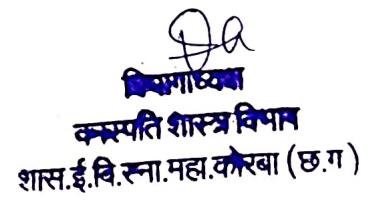 विभागाध्यक्ष
वनस्पति शास्त्र विभाग
शास.ई.वि.स्ना.महा.कोरबा (छ.ग)